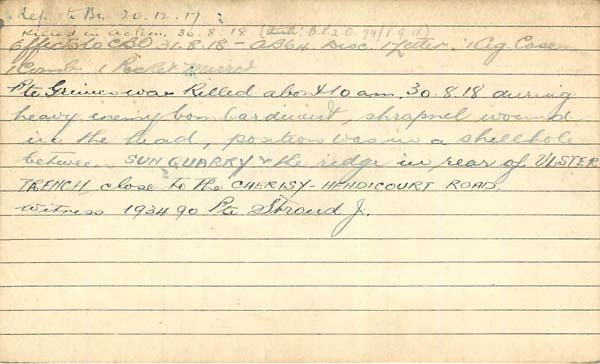 Rep. to Bn 20.12.17 :
Killed in action. 30.8.18 (Auth: B213 D.O. 79/1.9.18)
Effects to CBO 31.8.18 - AB64 Disc. 1 Letter. 1 Cig Case
1 Comb 1 Pocket Mirror
Pte Grimes was killed about 10 am. 30.8.18 during
heavy enemy bombardment, shrapnel wound
in the head, position was in a shellhole
between SUN QUARRY & the ridge in rear of ULSTER
TRENCH close to the CHERISY-HENDICOURT ROAD.
Witness 193490 Pte Stroud J.